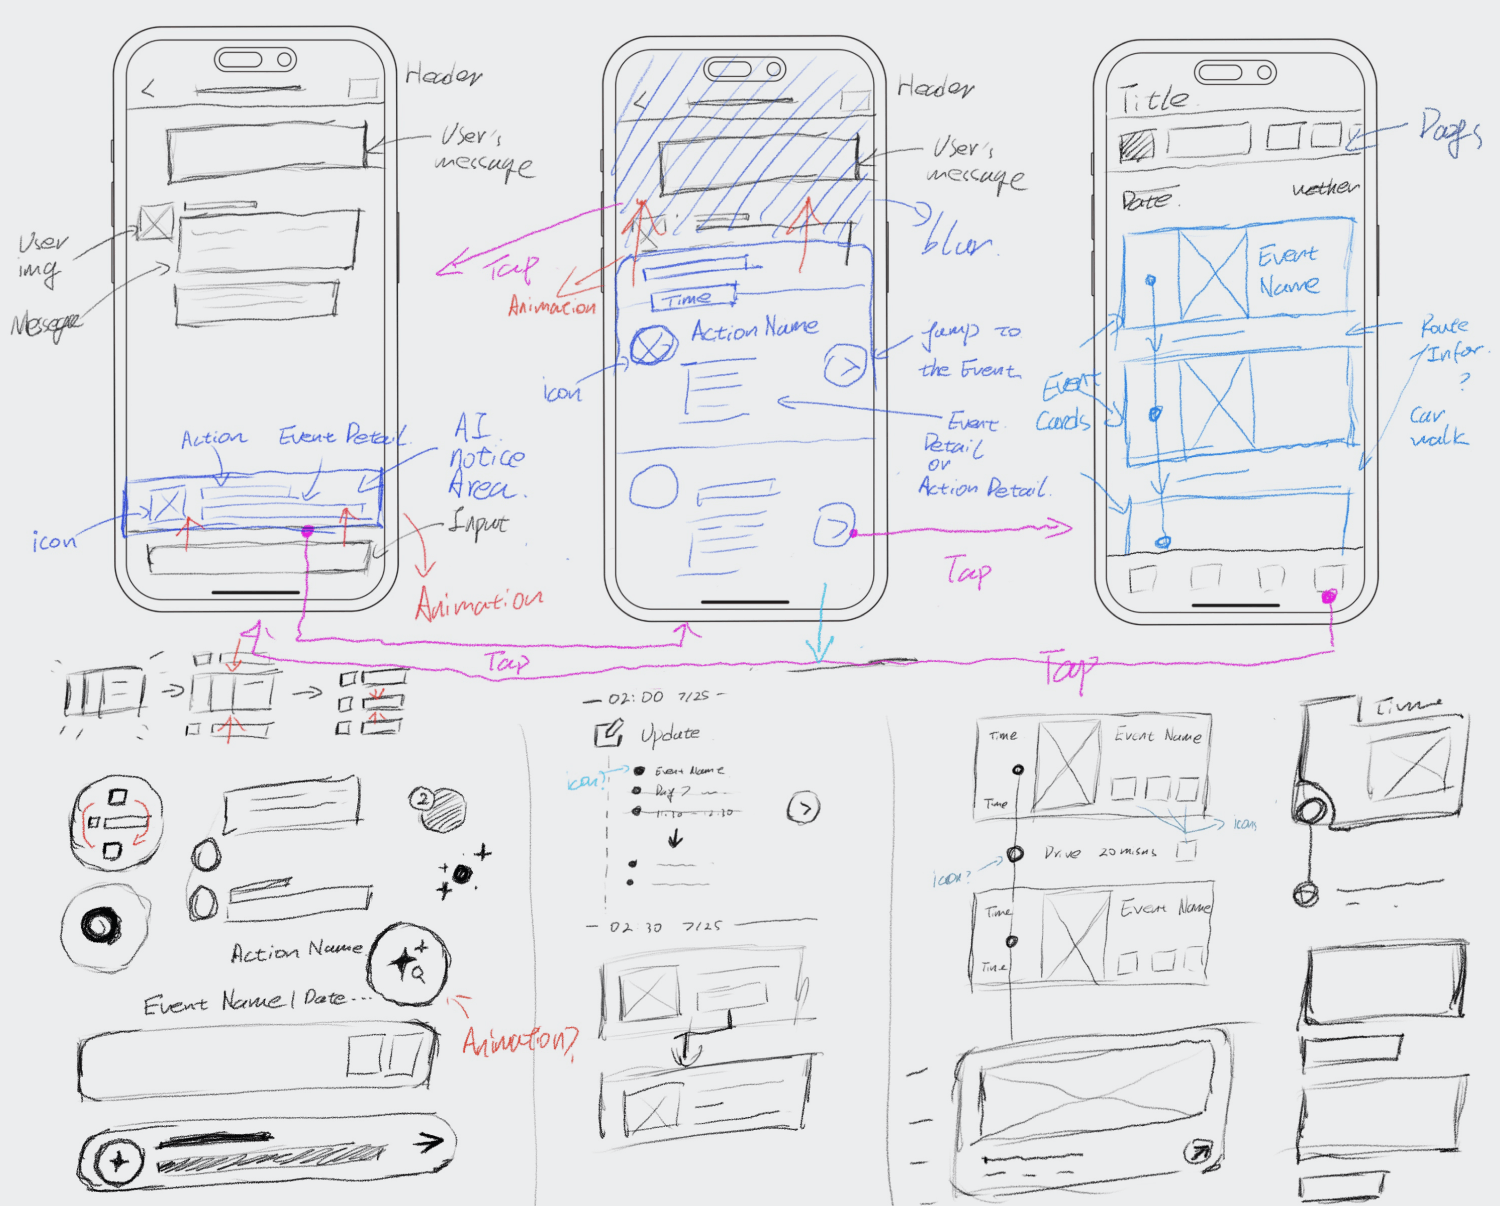 Header
User's
message
User
img
Message
Action
Event Detail
AI
notice
Area.
icon
Input
Animation
Tap
Header
User's
message
blur.
Tap
Animation
Time
Action Name
icon
Jump to
the Event
Event
Detail
or
Action Detail.
Tap
Title
Days
Date.
wether
Event
Name
Event
Cards
Route
/Infor.
?
Car
walk
Tap
2
Action Name
Event Name / Date...
Animation?
02:00 7/25
Update
icon?
Event Name
Day 7
11:30 - 12:30
02 30 7/25
Time
Event Name
Time
icon
icon?
Drive 20mins
Time
Event Name
Time
Time